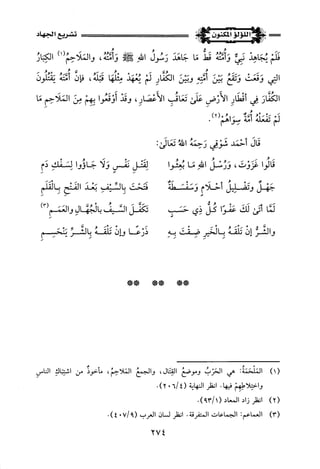 اللؤلؤ المكنون
تشريع الجهاد
فَلَمْ يُجَاهِدْ نَبِيٌّ وَأُمَّتُهُ قَطُّ مَا جَاهَدَ رَسُولُ اللهِ ﷺ وَأُمَّتُهُ، وَالمَلَاحِمُ(١) الكِبَارُ
التِي وَقَعَتْ وَتَقَعُ بَيْنَ أُمَّتِهِ وَبَيْنَ الكُفَّارِ لَمْ يُعْهَدْ مِثْلُهَا قَبْلَهُ، فَإِنَّ أُمَّتَهُ يَقْتُلُونَ
الكُفَّارَ فِي أَقْطَارِ الأَرْضِ عَلَى تَعَاقُبِ الأَعْصَارِ، وَقَدْ أَوْقَعُوا بِهِمْ مِنَ المَلَاحِمِ مَا
لَمْ تَفْعَلْهُ أُمَّةٌ سِوَاهُمْ(٢).
قَالَ أَحْمَد شَوْقِي رَحِمَهُ اللهُ تَعَالَى:
قَالُوا غَزَوْتَ، وَرُسْلُ اللهِ مَا بُعِثُوا لِقَتْلِ نَفْسٍ وَلَا جَاؤُوا لِسَفْكِ دَمِ
جَهْلٌ وَتَضْلِيلُ أَحْلَامٍ وَسَفْسَطَةٌ فَتَحْتَ بِالسَّيْفِ بَعْدَ الفَتْحِ بِالقَلَمِ
لَمَّا أَتَى لَكَ عَفْوًا كُلُّ ذِي حَسَبٍ تَكَفَّلَ السَّيْفُ بِالْجُهَّالِ وَالعَمَمِ(٣)
وَالشَّرُّ إِنْ تَلْقَهُ بِالْخَيْرِ ضِقْتَ بِهِ ذَرْعًا وَإِنْ تَلْقَهُ بِالشَّرِّ يَنْحَسِمِ
** ** **
(١) المَلْحَمَةُ: هي الحَرْبُ وموضِعُ القِتَالِ، والجمعُ المَلَاحِمُ، مأخوذٌ من اشتِبَاكِ الناس
واختِلَاطِهِمْ فيها. انظر النهاية (٢٠٦/٤).
(٢) انظر زاد المعاد (٩٣/١)
(٣) العماعم: الجماعات المتفرقة. انظر لسان العرب (٤٠٧/٩).
٢٧٤